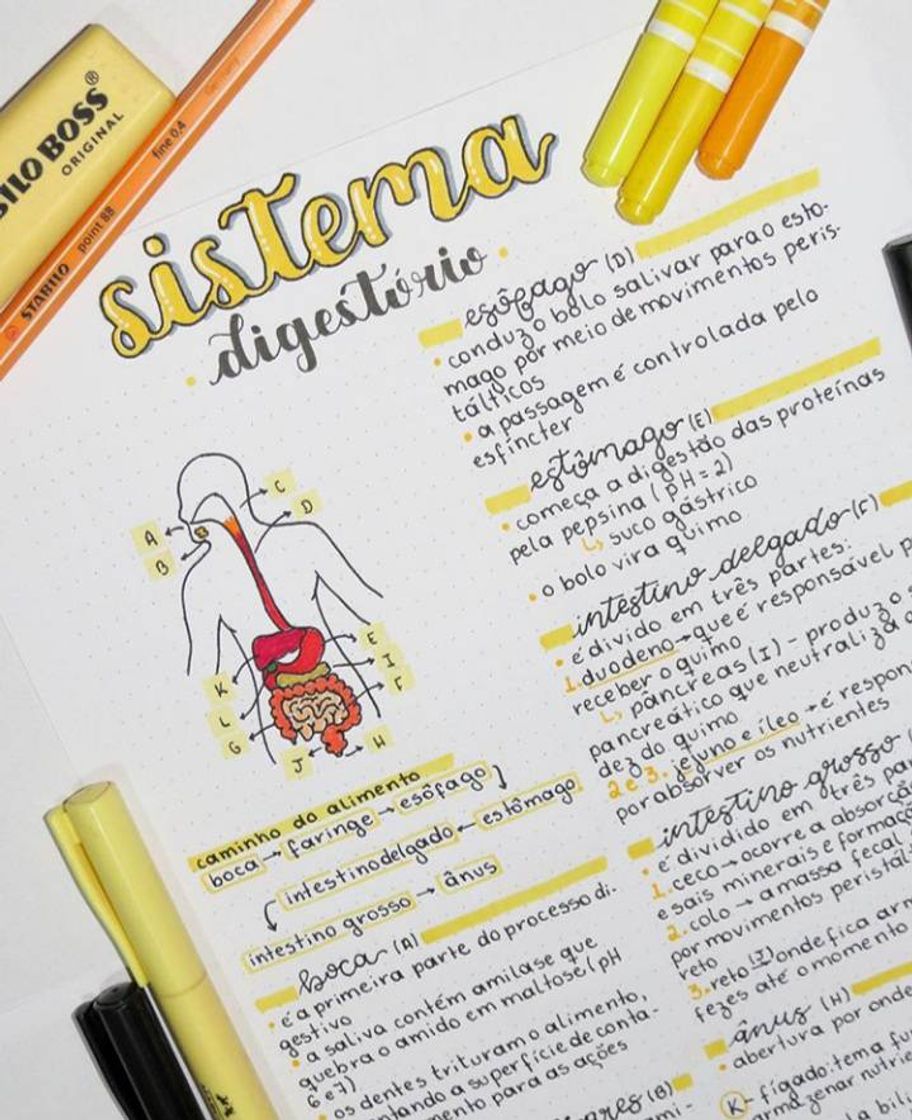 STABILO BOSS
ORIGINAL
STABILO point 88 fine 0,4 Germany
sistema
digestório
A
B
C
D
E
I
F
K
L
G
J
H
caminho do alimento
boca → faringe → esôfago
intestino delgado ← estômago
intestino grosso → ânus
boca (A)
• é a primeira parte do processo di-
gestivo
• a saliva contém amilase que
quebra o amido em maltose (pH
6 e 7)
• os dentes trituram o alimento,
a superfície de conta-
para as ações
(B)
esôfago (D)
• conduz o bolo salivar para o estô-
mago por meio de movimentos peris-
tálticos
• a passagem é controlada pelo
esfíncter
estômago (E)
• começa a digestão das proteínas
pela pepsina (pH=2)
↳ suco gástrico
• o bolo vira quimo
intestino delgado (F)
• é divido em três partes:
1. duodeno → que é responsável
receber o quimo
↳ pâncreas (I) - produz o
pancreático que neutraliza
dez do quimo
2 e 3. jejuno e íleo → é
por absorver os nutrientes
intestino grosso
• é dividido em três
1. ceco → ocorre a
e sais minerais e
2. colo → a massa fecal
por movimentos
reto
3. reto (J) → onde fica
fezes até o momento
ânus (H)
• abertura por onde
K - fígado: tem a